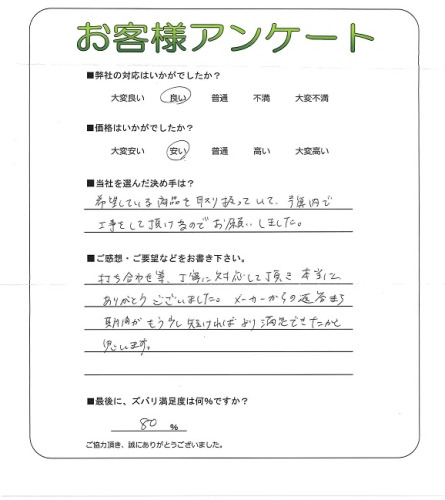 お客様アンケート
■弊社の対応はいかがでしたか？
大変良い 良い 普通 不満 大変不満
■価格はいかがでしたか？
大変安い 安い 普通 高い 大変高い
■当社を選んだ決め手は？
希望している商品を取り扱っていて、予算内で
工事をして頂けるのでお願いしました。
■ご感想・ご要望などをお書き下さい。
打ち合わせ等、丁寧に対応して頂き本当に
ありがとうございました。メーカーからの返答待ち
期間がもう少し短ければより満足できたかと
思います。
■最後に、ズバリ満足度は何%ですか？
80 %
ご協力頂き、誠にありがとうございました。